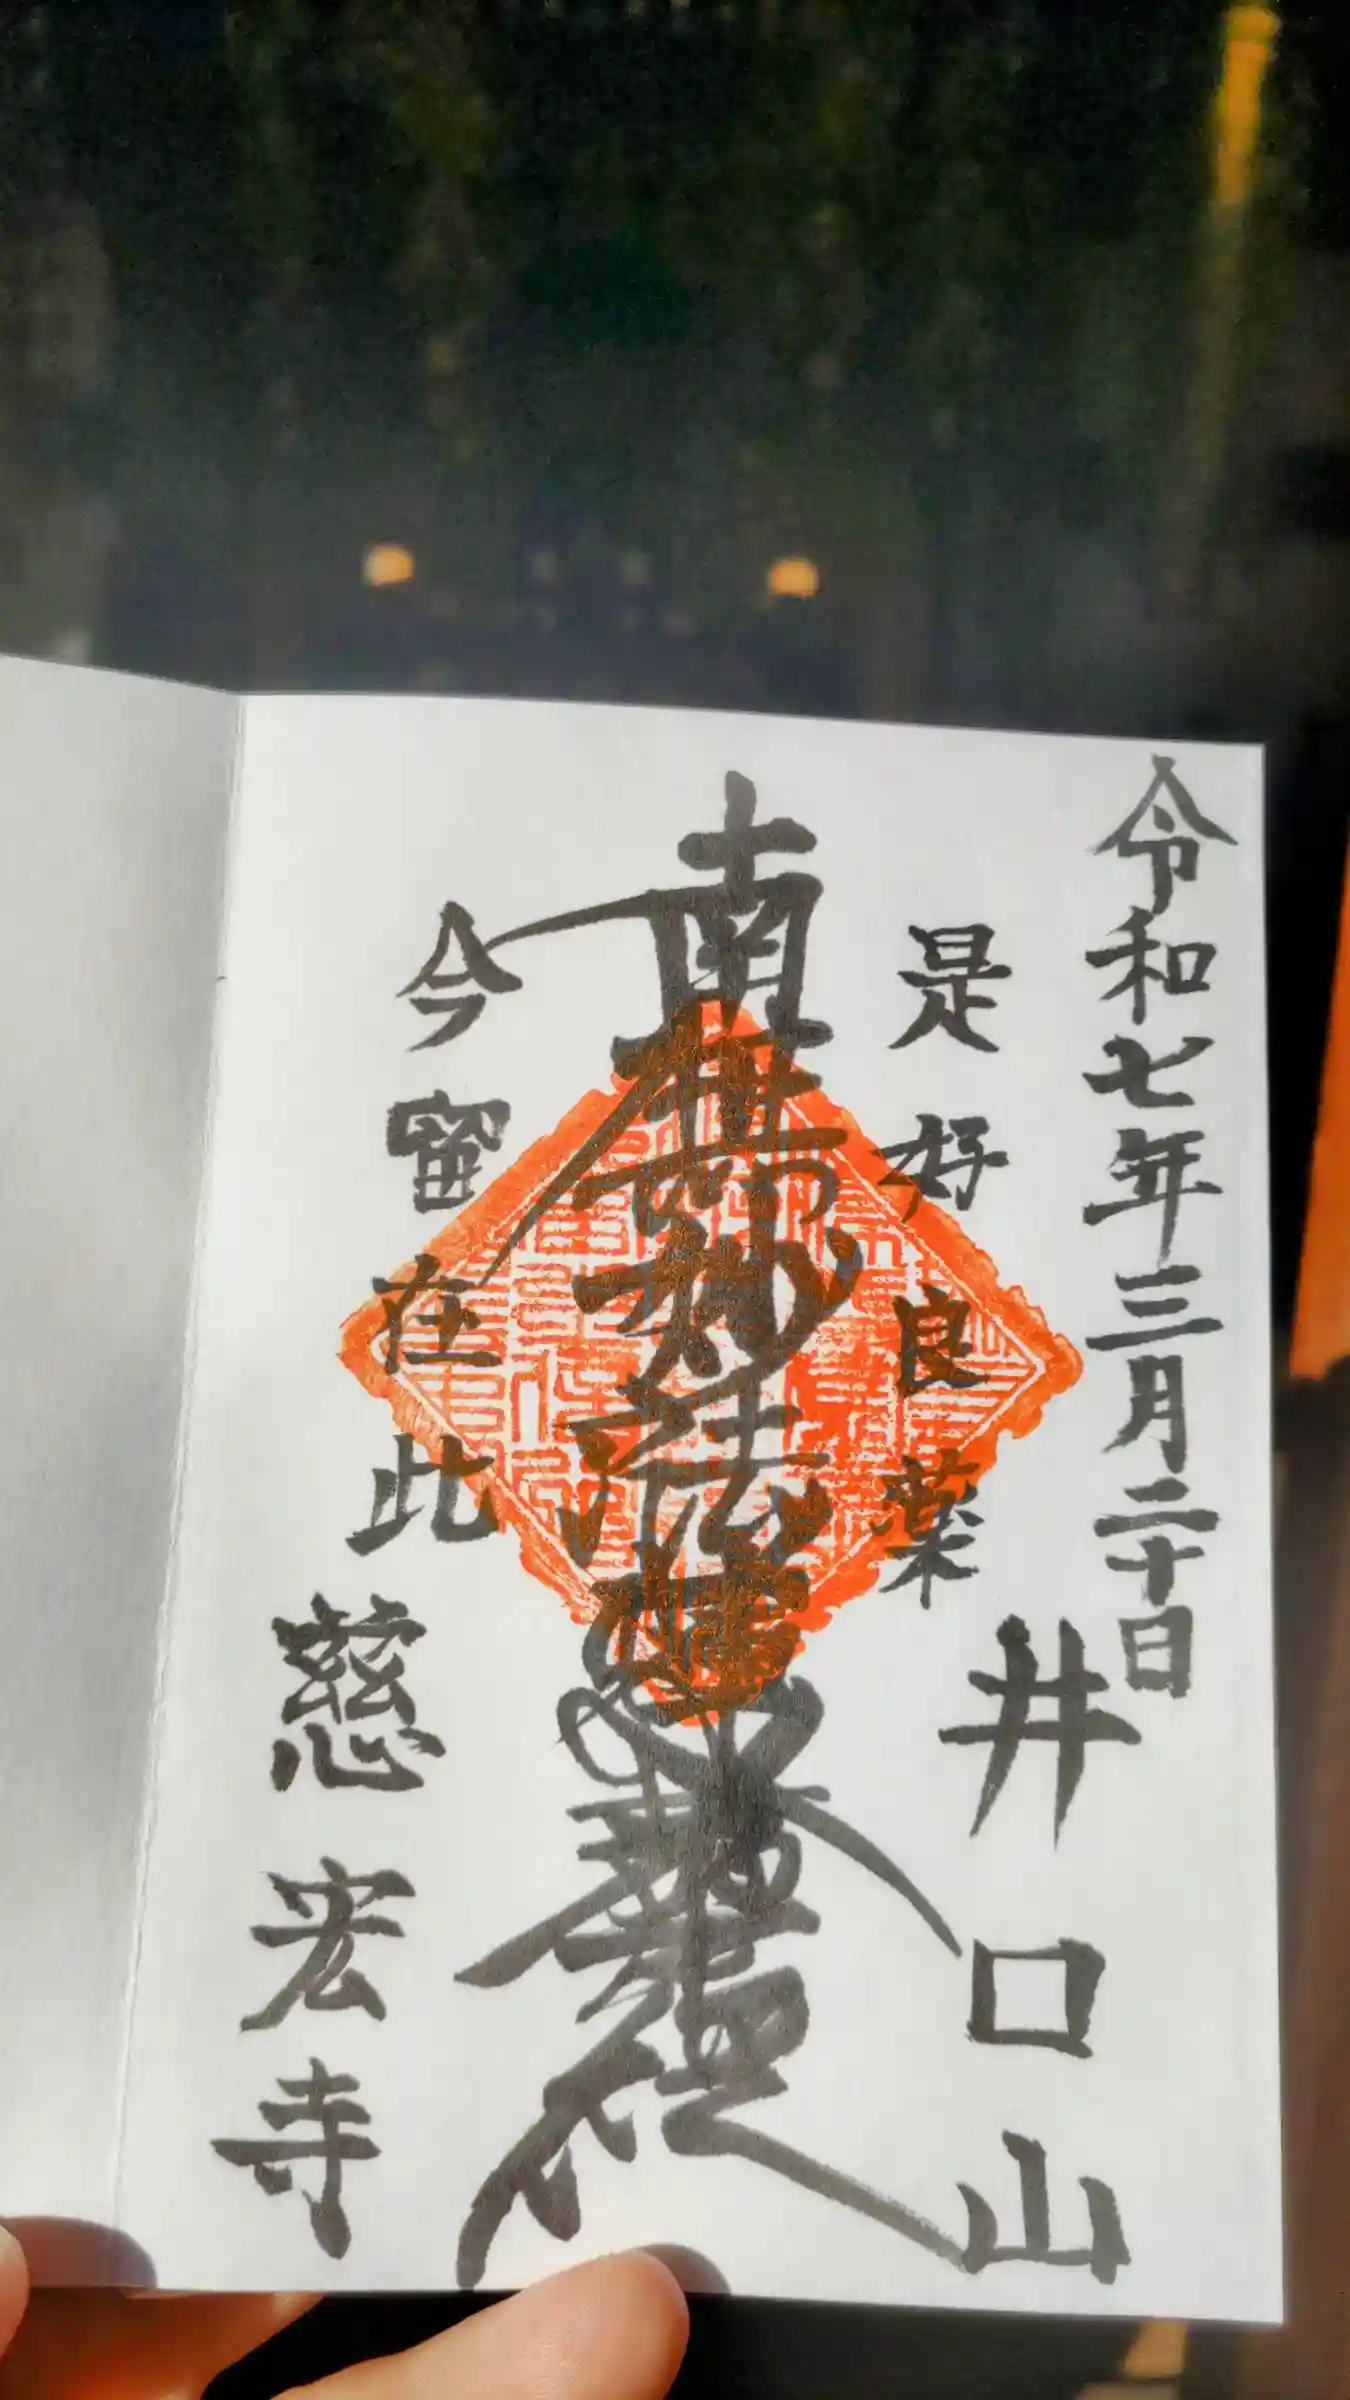 令和七年三月二十日
是好良薬
井口山
南無妙法蓮華経
今留在此
慈宏寺